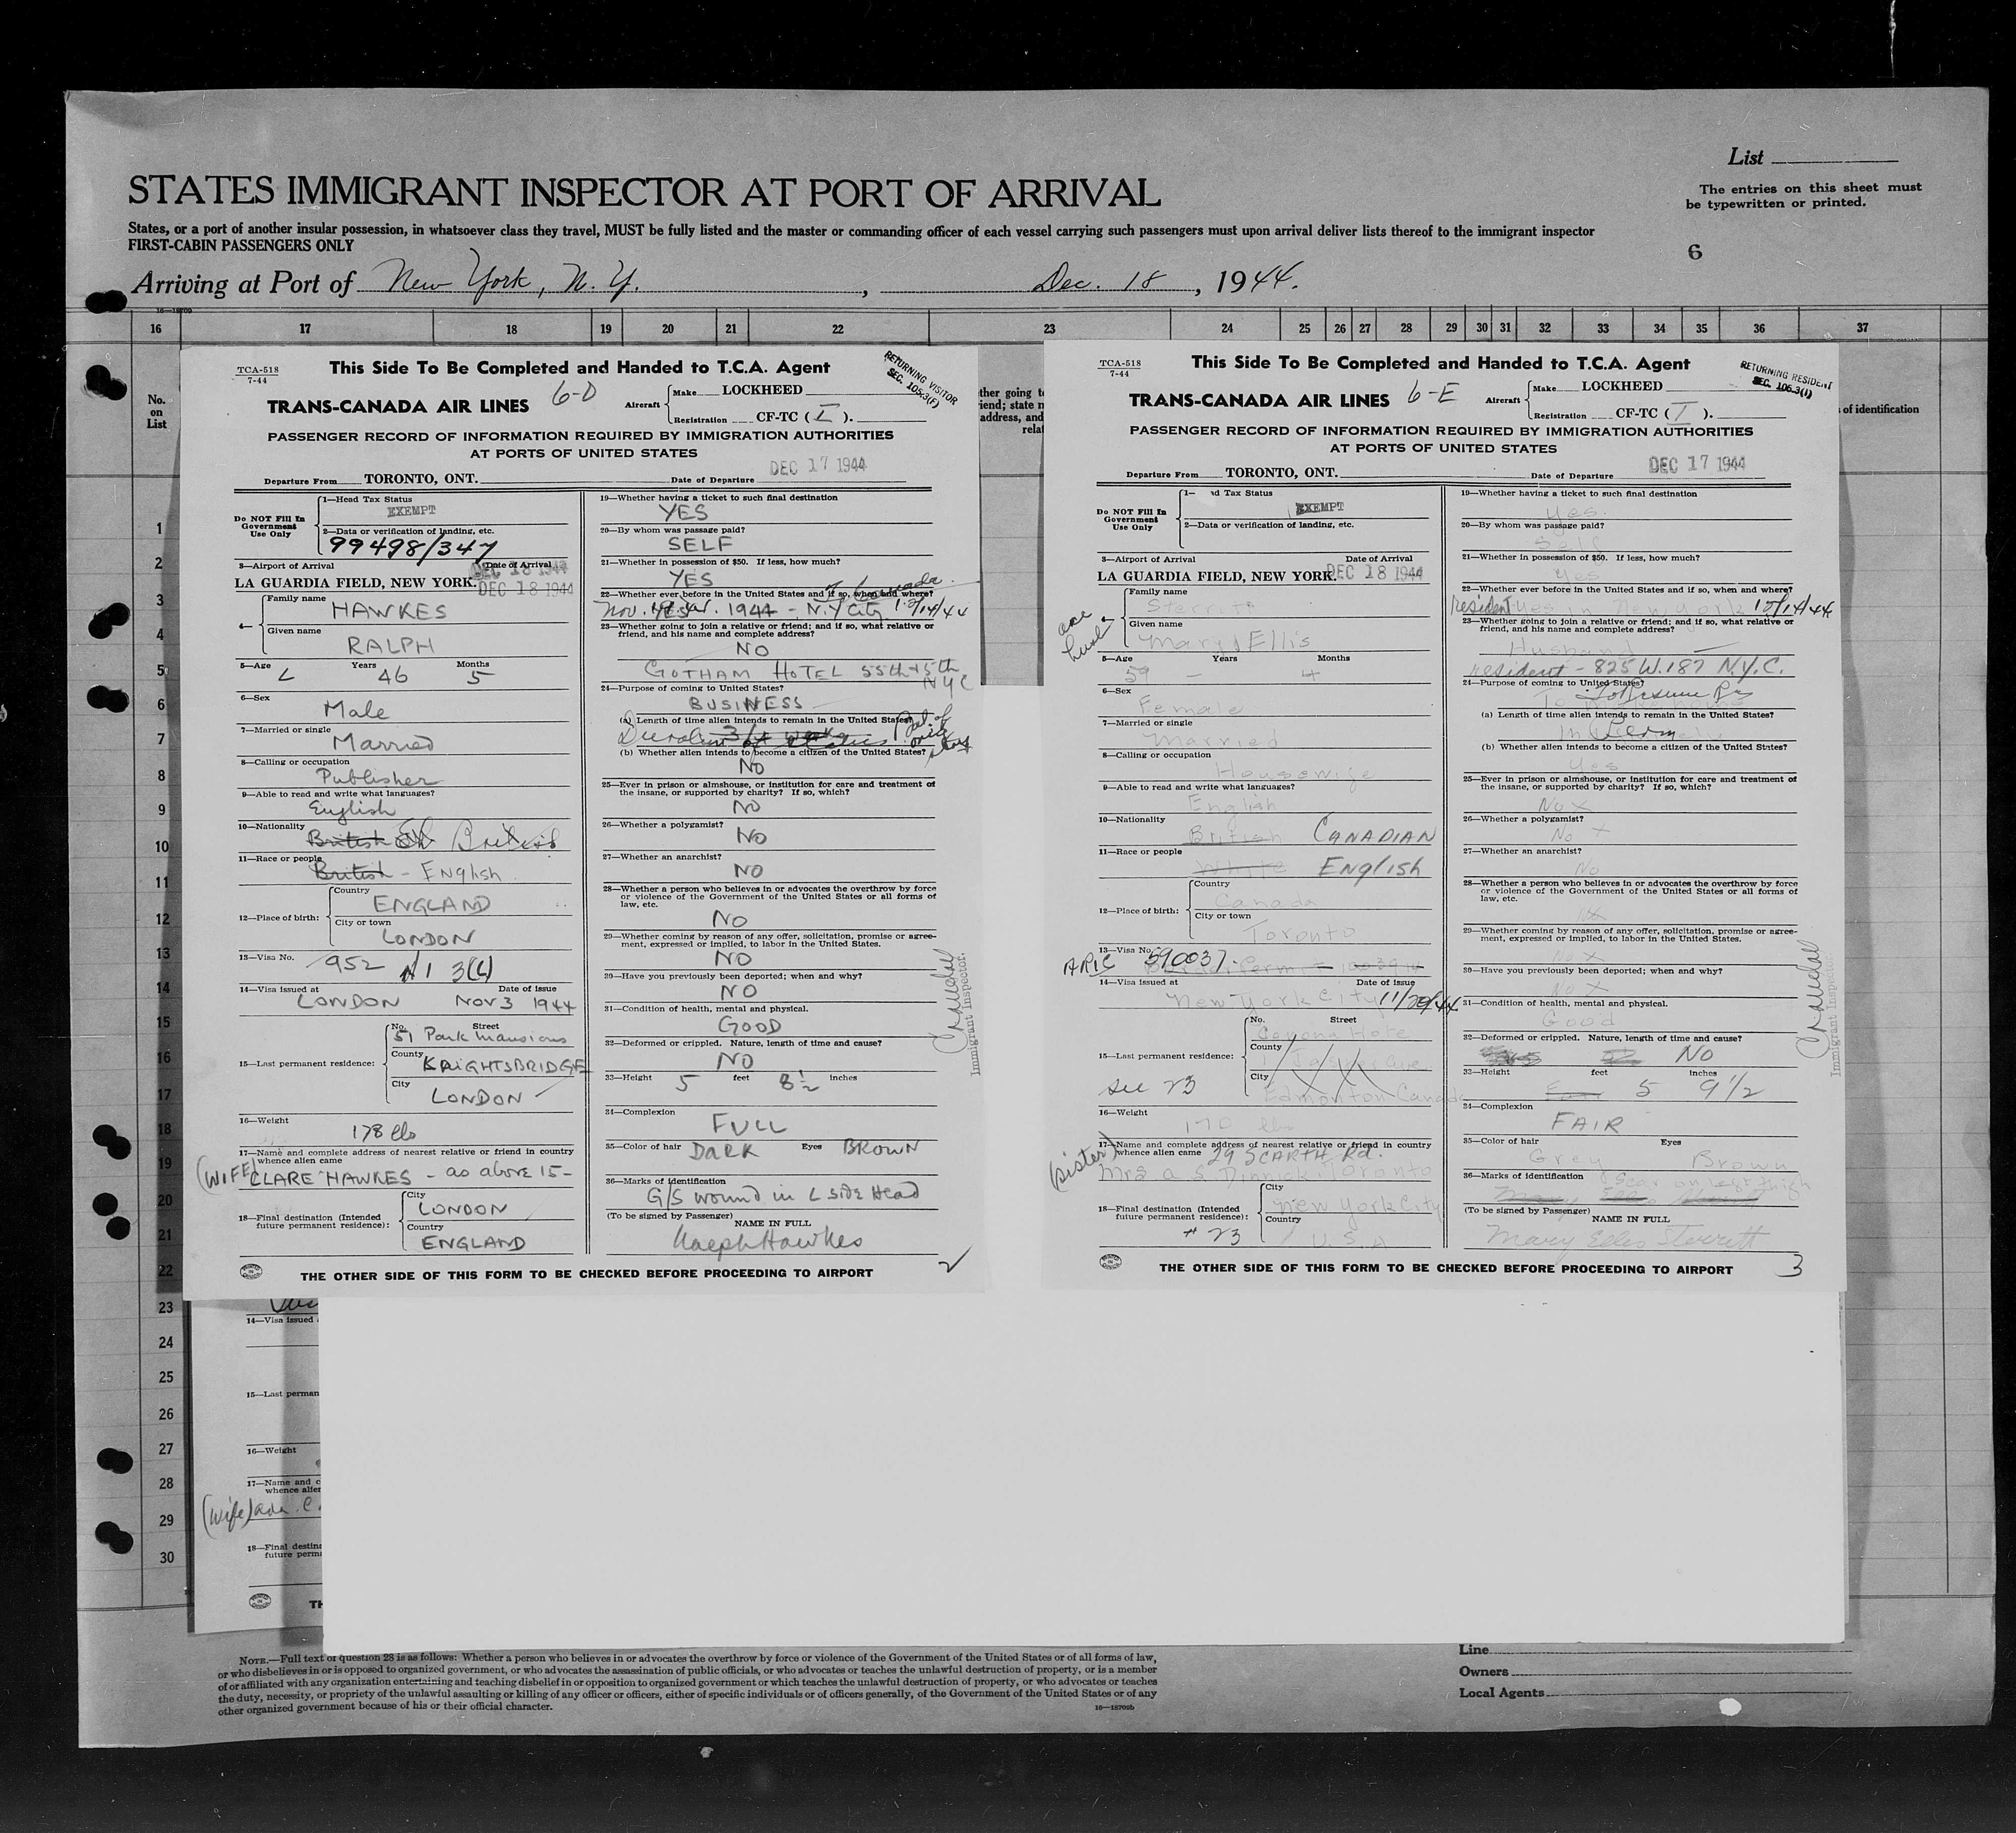 List
STATES IMMIGRANT INSPECTOR AT PORT OF ARRIVAL
The entries on this sheet must
be typewritten or printed.
States, or a port of another insular possession, in whatsoever class they travel, MUST be fully listed and the master or commanding officer of each vessel carrying such passengers must upon arrival deliver lists thereof to the immigrant inspector
FIRST-CABIN PASSENGERS ONLY
6
Arriving at Port of New York, N. Y., Dec. 18, 1944.
16—18709
16 17 18 19 20 21 22 23 24 25 26 27 28 29 30 31 32 33 34 35 36 37
No.
on
List
TCA-518
7-44
This Side To Be Completed and Handed to T.C.A. Agent
RETURNING VISITOR
SEC. 105.3(f)
TRANS-CANADA AIR LINES 6-D
Aircraft
Make LOCKHEED
Registration CF-TC ( I ).
PASSENGER RECORD OF INFORMATION REQUIRED BY IMMIGRATION AUTHORITIES
AT PORTS OF UNITED STATES
DEC 17 1944
Departure From TORONTO, ONT. Date of Departure
Do NOT Fill In
Government
Use Only
1—Head Tax Status
EXEMPT
2—Data or verification of landing, etc.
99498/347
3—Airport of Arrival Date of Arrival
DEC 18 1944
LA GUARDIA FIELD, NEW YORK. DEC 18 1944
4—
Family name
HAWKES
Given name
RALPH
5—Age Years Months
46 5
6—Sex
Male
7—Married or single
Married
8—Calling or occupation
Publisher
9—Able to read and write what languages?
English
10—Nationality
British British
11—Race or people
British - ENglish
12—Place of birth:
Country
ENGLAND
City or town
LONDON
13—Visa No.
952 3(6)
14—Visa issued at Date of issue
LONDON NOV 3 1944
15—Last permanent residence:
No. Street
51 Park Mansions
County
KNIGHTSBRIDGE
City
LONDON
16—Weight
178 lbs
17—Name and complete address of nearest relative or friend in country
whence alien came
(WIFE) CLARE HAWKES - as above 15-
18—Final destination (Intended
future permanent residence):
City
LONDON
Country
ENGLAND
19—Whether having a ticket to such final destination
YES
20—By whom was passage paid?
SELF
21—Whether in possession of $50. If less, how much?
YES
22—Whether ever before in the United States and if so, when and where?
To Canada
Nov. YES 1944 - N.Y City 12/14/44
23—Whether going to join a relative or friend; and if so, what relative or
friend, and his name and complete address?
NO
GOTHAM HOTEL 55th & 5th
NYC
24—Purpose of coming to United States?
BUSINESS
(a) Length of time alien intends to remain in the United States?
(b) Whether alien intends to become a citizen of the United States?
NO
25—Ever in prison or almshouse, or institution for care and treatment of
the insane, or supported by charity? If so, which?
NO
26—Whether a polygamist?
NO
27—Whether an anarchist?
NO
28—Whether a person who believes in or advocates the overthrow by force
or violence of the Government of the United States or all forms of
law, etc.
NO
29—Whether coming by reason of any offer, solicitation, promise or agree-
ment, expressed or implied, to labor in the United States.
NO
30—Have you previously been deported; when and why?
NO
31—Condition of health, mental and physical.
GOOD
32—Deformed or crippled. Nature, length of time and cause?
NO
33—Height 5 feet 8½ inches
34—Complexion
FULL
35—Color of hair DARK Eyes BROWN
36—Marks of identification
G/S wound in L side Head
(To be signed by Passenger)
NAME IN FULL
Ralph Hawkes
Immigrant Inspector.
THE OTHER SIDE OF THIS FORM TO BE CHECKED BEFORE PROCEEDING TO AIRPORT
ther going t
iend; state n
address, and
rela
TCA-518
7-44
This Side To Be Completed and Handed to T.C.A. Agent
RETURNING RESIDENT
SEC. 105.3(f)
TRANS-CANADA AIR LINES 6-E
Aircraft
Make LOCKHEED
Registration CF-TC ( I ).
of identification
PASSENGER RECORD OF INFORMATION REQUIRED BY IMMIGRATION AUTHORITIES
AT PORTS OF UNITED STATES
DEC 17 1944
Departure From TORONTO, ONT. Date of Departure
Do NOT Fill In
Government
Use Only
1— ad Tax Status
EXEMPT
2—Data or verification of landing, etc.
3—Airport of Arrival Date of Arrival
LA GUARDIA FIELD, NEW YORK. DEC 18 1944
4—
Family name
Sterritt
Given name
Mary Ellis
5—Age Years Months
59 - 4
6—Sex
Female
7—Married or single
Married
8—Calling or occupation
Housewife
9—Able to read and write what languages?
English
10—Nationality
British CANADIAN
11—Race or people
White ENglish
12—Place of birth:
Country
Canada
City or town
Toronto
13—Visa No.
ARIC 590037
14—Visa issued at Date of issue
New York City 11/29/44
15—Last permanent residence:
No. Street
Corona Hote
County
Jasper Ave
City
Edmonton Canada
see 23
16—Weight
170 lbs
17—Name and complete address of nearest relative or friend in country
whence alien came 29 SCARTH Rd.
(sister) Mrs A S Dimick Toronto
18—Final destination (Intended
future permanent residence):
City
New York City
Country
# 23 U.S.A
19—Whether having a ticket to such final destination
Yes.
20—By whom was passage paid?
Self
21—Whether in possession of $50. If less, how much?
Yes
22—Whether ever before in the United States and if so, when and where?
resident Yes in New York 12/14/44
23—Whether going to join a relative or friend; and if so, what relative or
friend, and his name and complete address?
Husband
resident - 825 W. 187 N.Y.C.
24—Purpose of coming to United States?
To Resume Res
(a) Length of time alien intends to remain in the United States?
Perm
(b) Whether alien intends to become a citizen of the United States?
Yes
25—Ever in prison or almshouse, or institution for care and treatment of
the insane, or supported by charity? If so, which?
No x
26—Whether a polygamist?
No x
27—Whether an anarchist?
No
28—Whether a person who believes in or advocates the overthrow by force
or violence of the Government of the United States or all forms of
law, etc.
No
29—Whether coming by reason of any offer, solicitation, promise or agree-
ment, expressed or implied, to labor in the United States.
No x
30—Have you previously been deported; when and why?
No x
31—Condition of health, mental and physical.
Good
32—Deformed or crippled. Nature, length of time and cause?
NO
33—Height feet inches
5 9 1/2
34—Complexion
FAIR
35—Color of hair Eyes
Grey Brown
36—Marks of identification
(To be signed by Passenger)
NAME IN FULL
Mary Ellis Sterritt
Immigrant Inspector
THE OTHER SIDE OF THIS FORM TO BE CHECKED BEFORE PROCEEDING TO AIRPORT 3
1
2
3
4
5
6
7
8
9
10
11
12
13
14
15
16
17
18
19
20
21
22
23
24
25
26
27
28
29
30
14—Visa issued
15—Last perman
16—Weight
17—Name and c
whence alien
(wife) ada. C
18—Final destina
future perma
TH
NOTE.—Full text of question 28 is as follows: Whether a person who believes in or advocates the overthrow by force or violence of the Government of the United States or of all forms of law,
or who disbelieves in or is opposed to organized government, or who advocates the assassination of public officials, or who advocates or teaches the unlawful destruction of property, or is a member
of or affiliated with any organization entertaining and teaching disbelief in or opposition to organized government or which teaches the unlawful destruction of property, or who advocates or teaches
the duty, necessity, or propriety of the unlawful assaulting or killing of any officer or officers, either of specific individuals or of officers generally, of the Government of the United States or of any
other organized government because of his or their official character.
16—18709b
Line
Owners
Local Agents